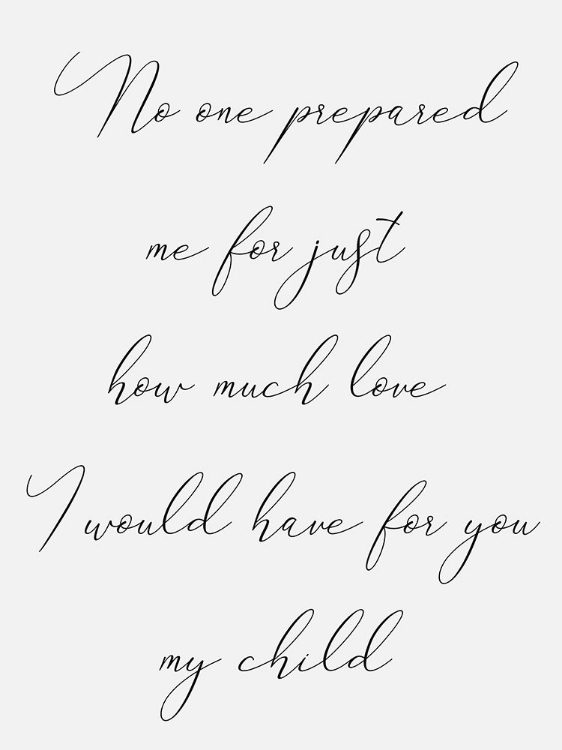 No one prepared
me for just
how much love
I would have for you
my child